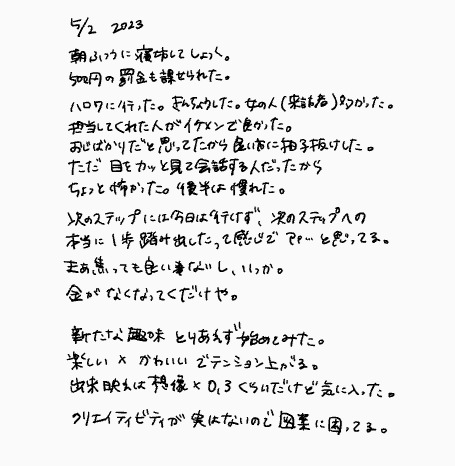 5/2 2023
朝ふつうに寝坊してしょっく。
500円の罰金も課せられた。
ハロワに行った。きんちょうした。女の人(来訪者)多かった。
担当してくれた人がイケメンで良かった。
おじばかりだと思ってたから良い方に拍子抜けした。
ただ 目をカッと見て会話する人だったから
ちょっと怖かった。後半は慣れた。
次のステップには今日は行けず、次のステップへの
本当に1歩踏み出したって感じで アァ…と思ってる。
まぁ焦っても良い事ないし、いっか。
金がなくなってくだけや。
新たな趣味 とりあえず始めてみた。
楽しい × かわいい でテンション上がる。
出来映えは想像×0,3くらいだけど気に入った。
クリエイティビティが実はないので図案に困ってる。